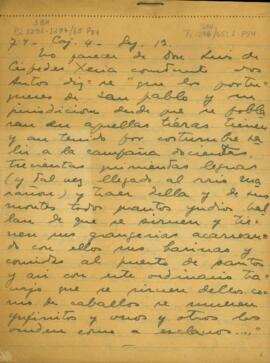 74. Caj. 4. Leg. 13.
"Al parecer de Don Luis de
Cespedes Xeria
autos diz: se que los portu-
gueses de san pablo y su
jurisdicion desde que se pobla-
ran en aquellas tierras tienen
y an tenido por costumbre sa-
lir a la campaña docientas
trecientas quinientas leguas
(y tal vez llegado al rio mara-
ñon) y traer della y de sus
montes todos quantos yndios ha-
llan de que se sirven y tie-
nen sus grangerias acarrean-
do con ellos sus harinas y
comidas al puerto de santos
y asi con este ordinario tra-
vajo que se sirven dellos co-
mo de caballos se mueren
ynfinitos y unos y otros los
venden como a esclavos..."